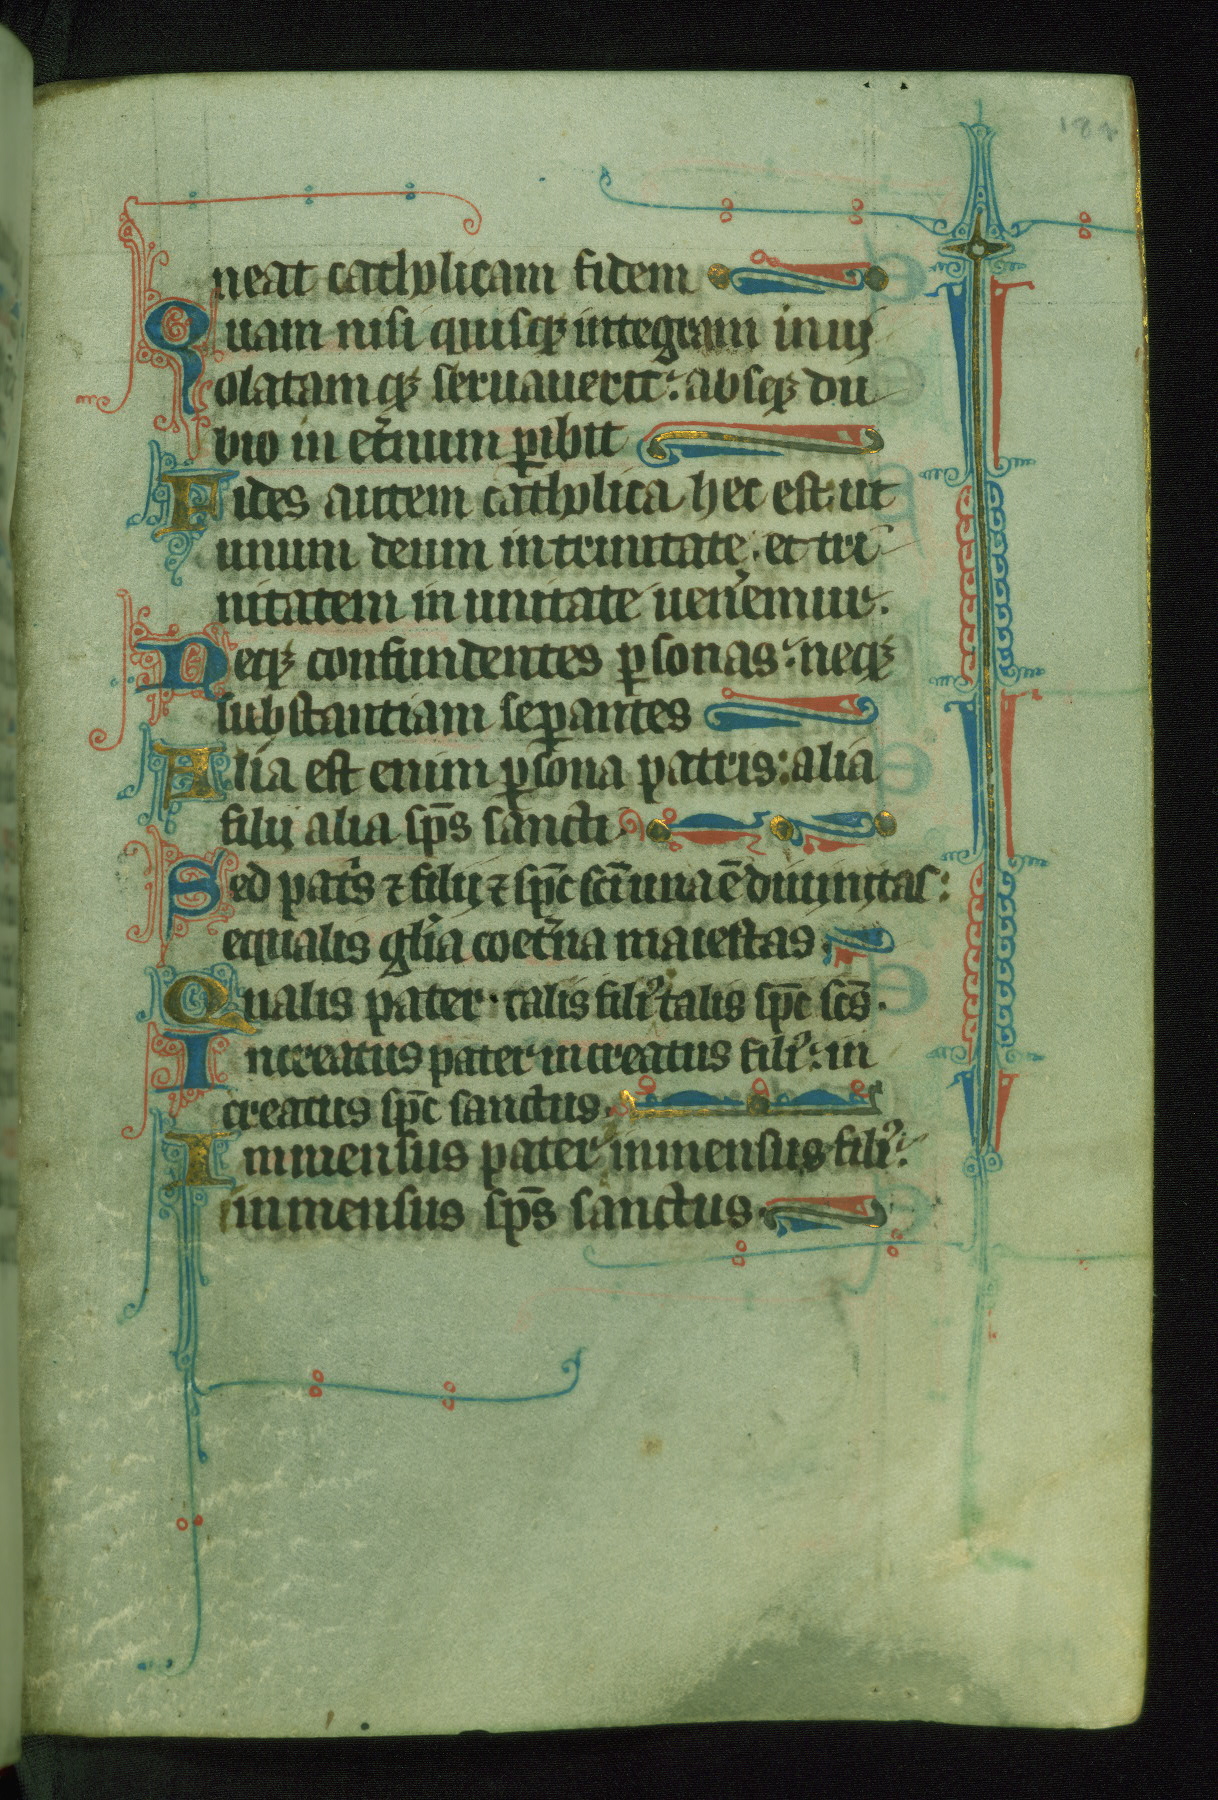 neat catholicam fidem
Quam nisi quisqꝫ integram inuij
olatamqꝫ seruauerit: absqꝫ du
bio in et̾num ꝑibit
Fides autem catholica hec est ut
unum deum in trinitate. et tri
nitatem in unitate uen̾emur.
Neqꝫ confundentes ꝑsonas: neqꝫ
substantiam seꝑantes
Alia est enim ꝑsona patris: alia
filij alia sp̄s sancti
Sed pat̾s ⁊ filij ⁊ sp̄c sc̄i una ē diuinitas:
equalis gl̾ia coet̾na maiestas.
Qualis pater. talis filiꝰ talis sp̄c sc̄s.
Increatus pater increatus filiꝰ: in
creatus sp̄c sanctus.
Inmensus pater inmensus filiꝰ:
inmensus sp̄s sanctus.